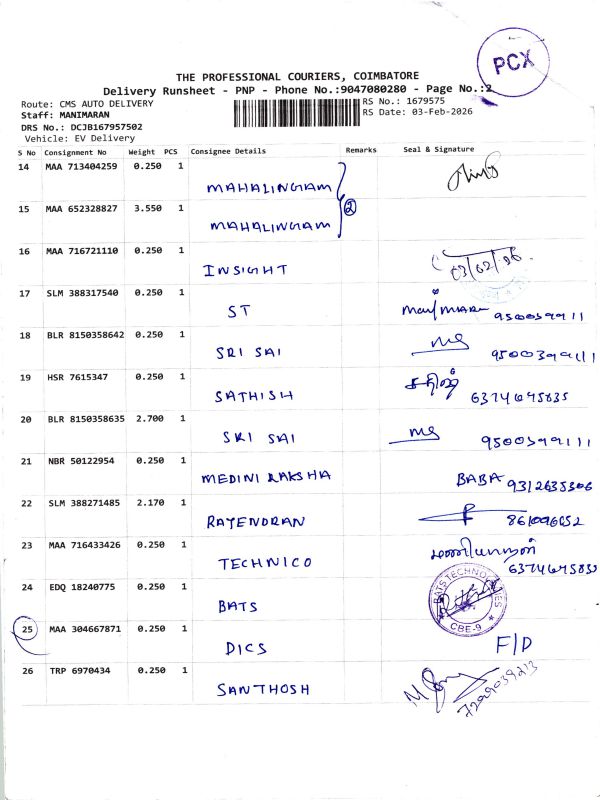 PCX
THE PROFESSIONAL COURIERS, COIMBATORE
Delivery Runsheet - PNP - Phone No.:9047080280 - Page No.:2
Route: CMS AUTO DELIVERY RS No.: 1679575
Staff: MANIMARAN RS Date: 03-Feb-2026
DRS No.: DCJB167957502
Vehicle: EV Delivery
S No Consignment No Weight PCS Consignee Details Remarks Seal & Signature
14 MAA 713404259 0.250 1 MAHALINGAM
15 MAA 652328827 3.550 1 MAHALINGAM 2
16 MAA 716721110 0.250 1 INSIGHT 03/02/26
17 SLM 388317540 0.250 1 ST
18 BLR 8150358642 0.250 1 SRI SAI MS
19 HSR 7615347 0.250 1 SATHISH சதிஷ்
20 BLR 8150358635 2.700 1 SRI SAI MS
21 NBR 50122954 0.250 1 MEDINI RAKSHA BABA
22 SLM 388271485 2.170 1 RAJENDRAN
23 MAA 716433426 0.250 1 TECHNICO மணிமாறன்
24 EDQ 18240775 0.250 1 BATS BATS TECHNOLOGIES CBE-9
25 MAA 304667871 0.250 1 DICS F/D
26 TRP 6970434 0.250 1 SANTHOSH 7299039213